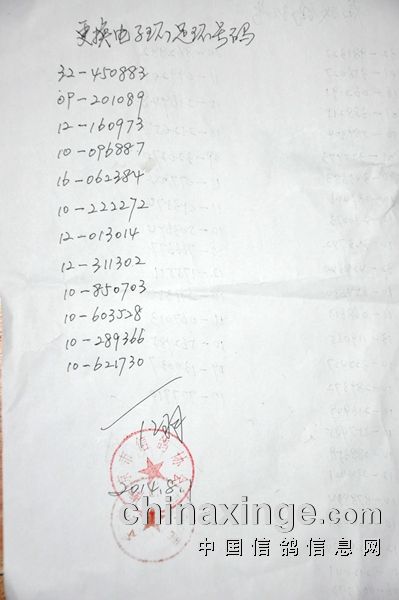 更换电子环足环号码
32-450883
09-201089
12-160973
10-096887
16-062384
10-222272
12-013014
12-311302
10-850703
10-603528
10-289366
10-621730
12羽
2014.8.
chinaxinge.com
中国信鸽信息网